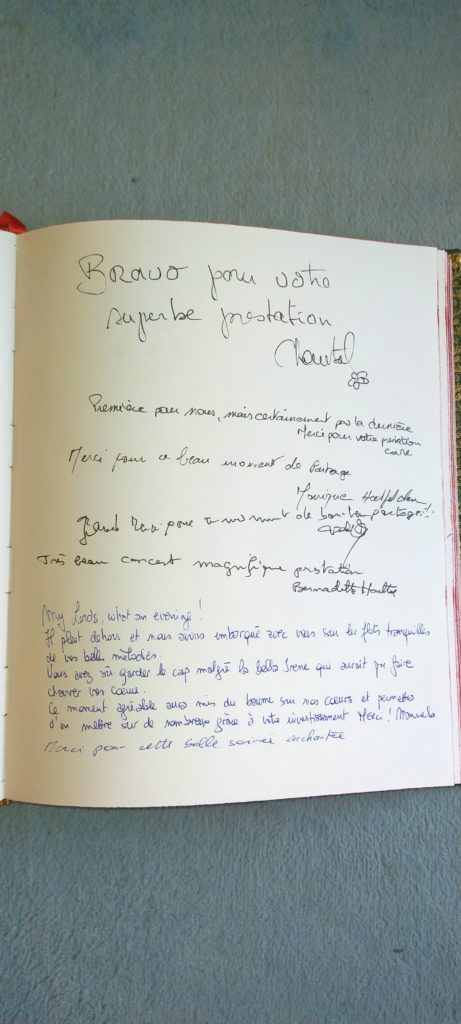 Bravo pour votre
superbe prestation
Chantal
Première pour nous, mais certainement pas la dernière
Merci pour votre prestation
Merci pour ce beau moment de Partage
Monique
Grand Merci pour ce moment de bonheur partagé!!
Très beau concert magnifique prestation
Bernadette
My Lords, what an evening!
Il pleut dehors et nous avons embarqué avec vous sur les flots tranquilles
de vos belles mélodies.
Vous avez su garder le cap malgré la belle Irène qui aurait pu faire
chavirer vos coeurs.
Ce moment agréable aura mis du baume sur nos coeurs et permettra
d'en mettre sur de nombreux grâce à votre investissement Merci! Manuela
Merci pour cette belle soirée enchantée